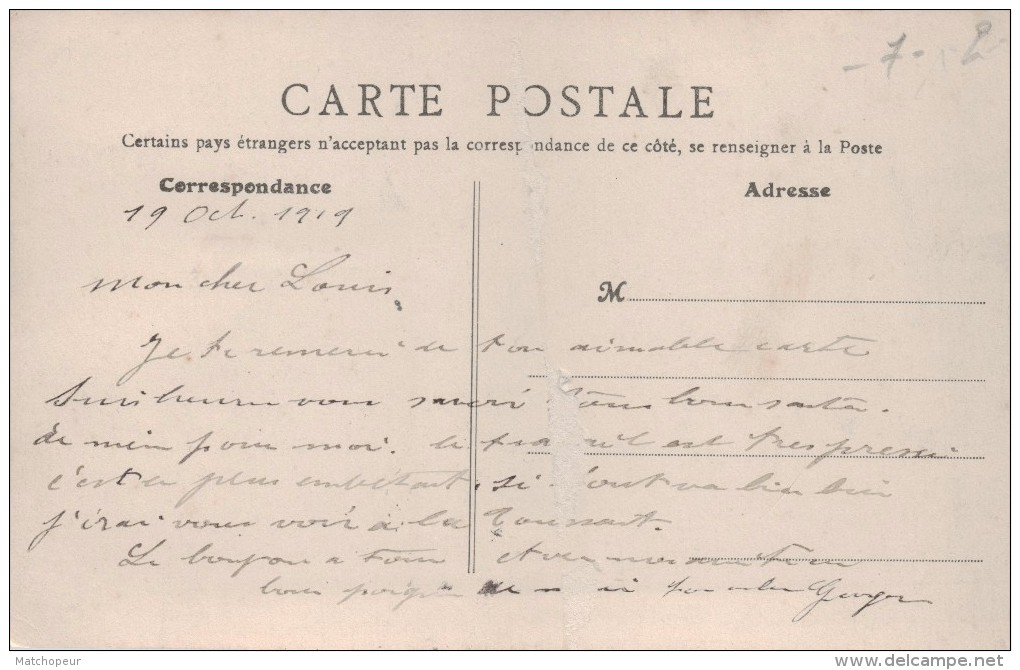 - 7 -
CARTE POSTALE
Certains pays étrangers n'acceptant pas la correspondance de ce côté, se renseigner à la Poste
Correspondance
Adresse
19 Oct. 1919
mon cher Louis
M
Je te remerci de ton aimable carte
vous savoir tous bonne santé.
de meme pour moi. le travail est tres
c'est le plus embêtant. si tout va bien bien
j'irai vous voir à la Toussaint.
Le bonjour a tous
bonne poignée de
Matchopeur
delcampe.net